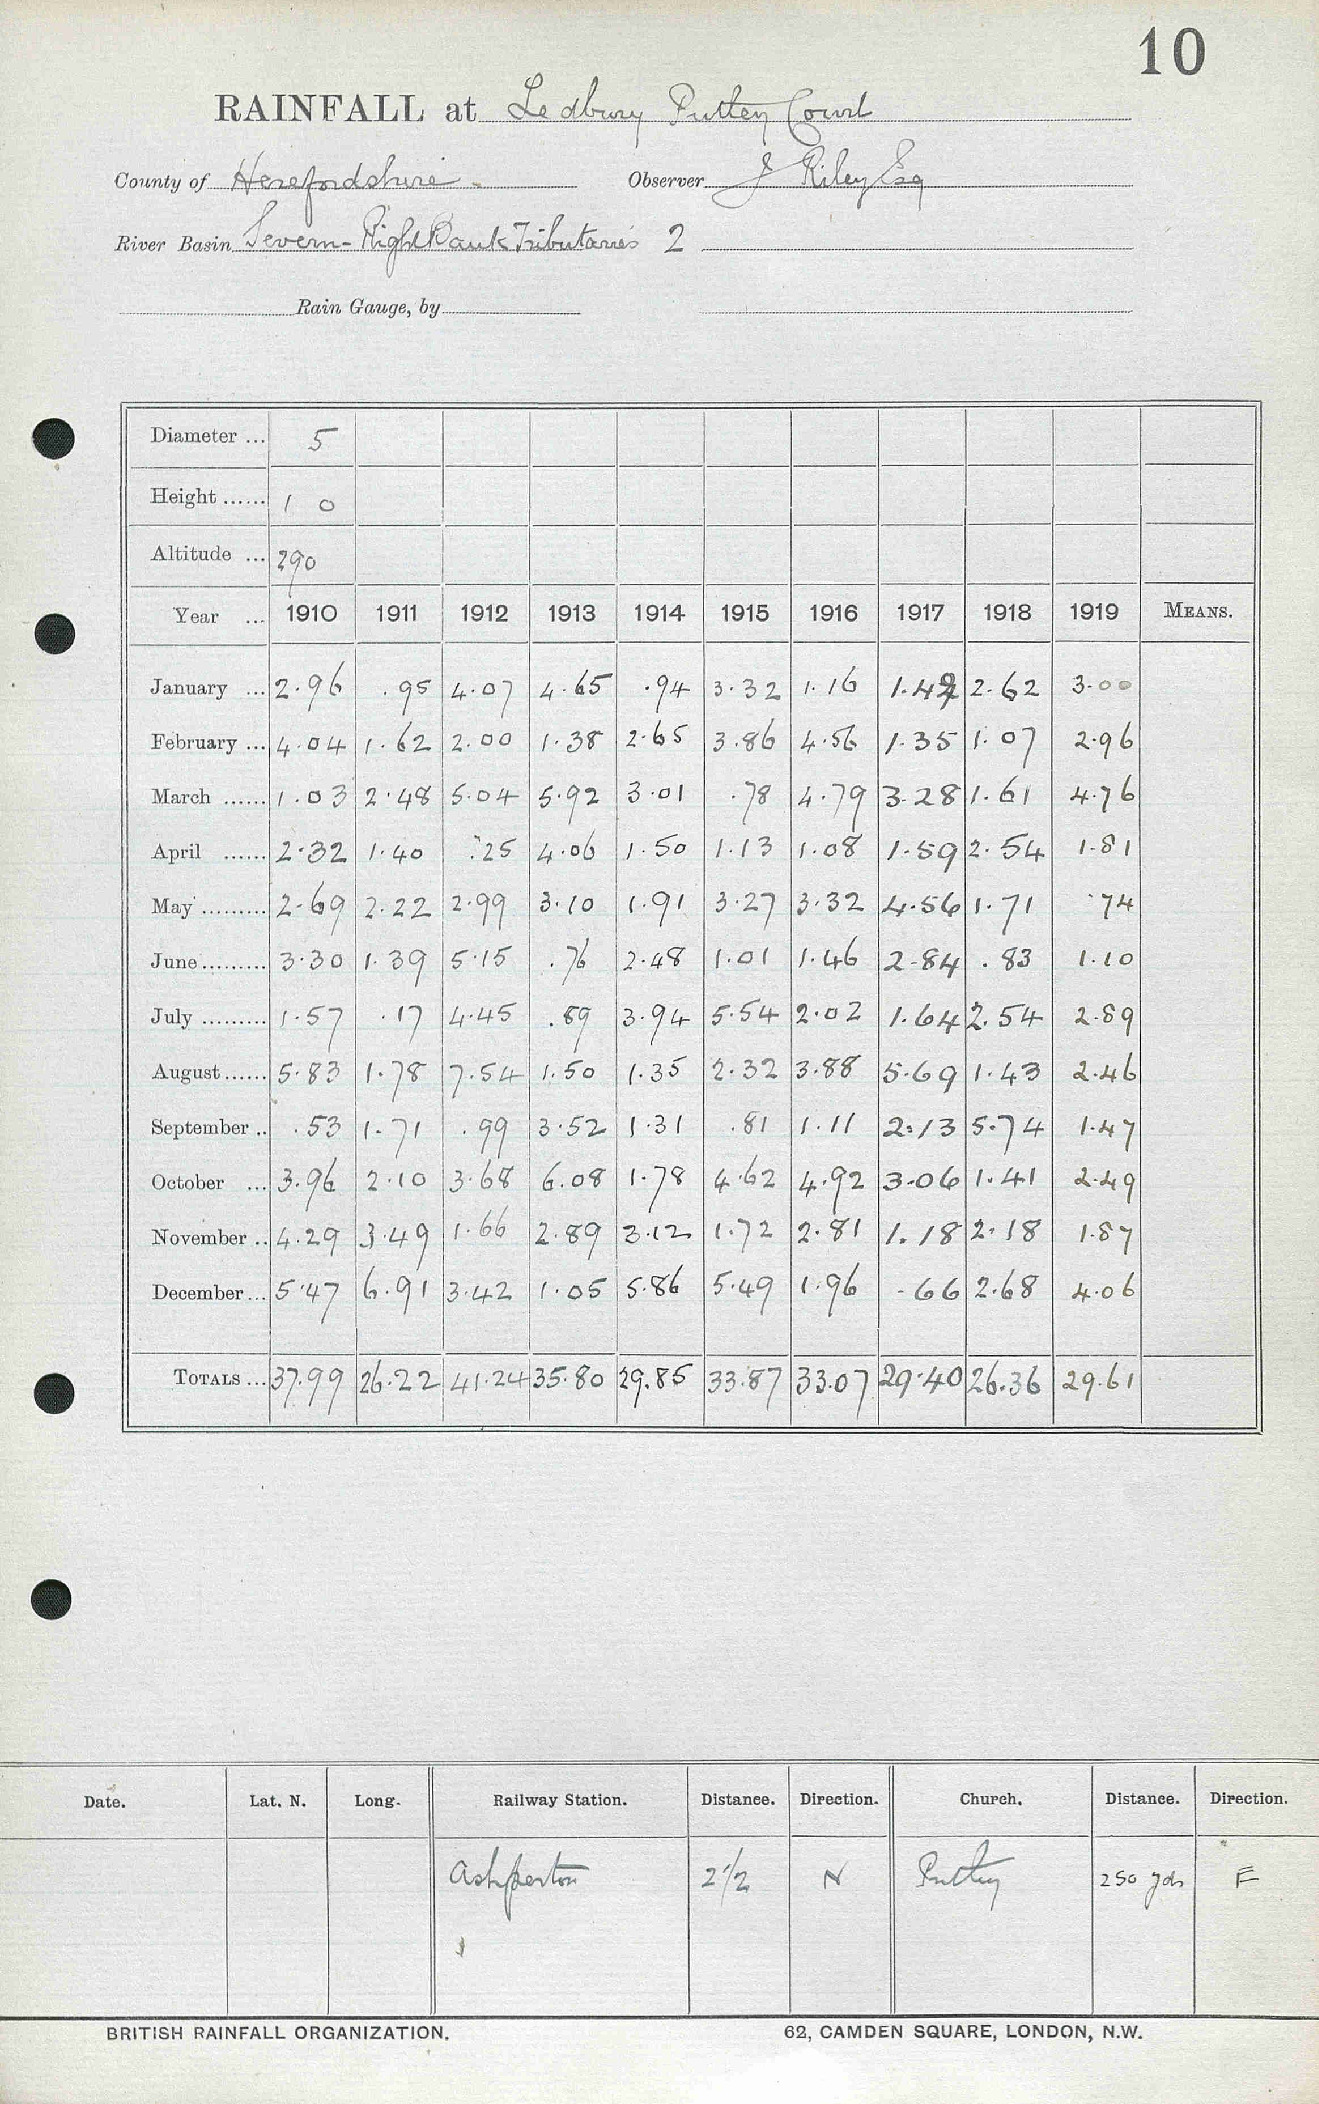 10
RAINFALL at Ledbury Putley Court
County of Herefordshire. Observer J Riley Esq
River Basin Severn - Right Bank Tributaries 2
Rain Gauge, by
Diameter ... 5
Height ...... 1 0
Altitude ... 290
Year ... 1910 1911 1912 1913 1914 1915 1916 1917 1918 1919 MEANS.
January ... 2.96 .95 4.07 4.65 .94 3.32 1.16 1.42 2.62 3.00
February ... 4.04 1.62 2.00 1.38 2.65 3.86 4.56 1.35 1.07 2.96
March ...... 1.03 2.48 5.04 5.92 3.01 .78 4.79 3.28 1.61 4.76
April ...... 2.32 1.40 .25 4.06 1.50 1.13 1.08 1.59 2.54 1.81
May ......... 2.69 2.22 2.99 3.10 1.91 3.27 3.32 4.56 1.71 .74
June ......... 3.30 1.39 5.15 .76 2.48 1.01 1.46 2.84 .83 1.10
July ......... 1.57 .17 4.45 .89 3.94 5.54 2.02 1.64 2.54 2.89
August ...... 5.83 1.78 7.54 1.50 1.35 2.32 3.88 5.69 1.43 2.46
September .. .53 1.71 .99 3.52 1.31 .81 1.11 2.13 5.74 1.47
October ... 3.96 2.10 3.68 6.08 1.78 4.62 4.92 3.06 1.41 2.49
November .. 4.29 3.49 1.66 2.89 3.12 1.72 2.81 1.18 2.18 1.87
December ... 5.47 6.91 3.42 1.05 5.86 5.49 1.96 .66 2.68 4.06
TOTALS ... 37.99 26.22 41.24 35.80 29.85 33.87 33.07 29.40 26.36 29.61
Date. Lat. N. Long. Railway Station. Distance. Direction. Church. Distance. Direction.
Ashperton 2 1/2 N Putley 250 yds E
BRITISH RAINFALL ORGANIZATION. 62, CAMDEN SQUARE, LONDON, N.W.